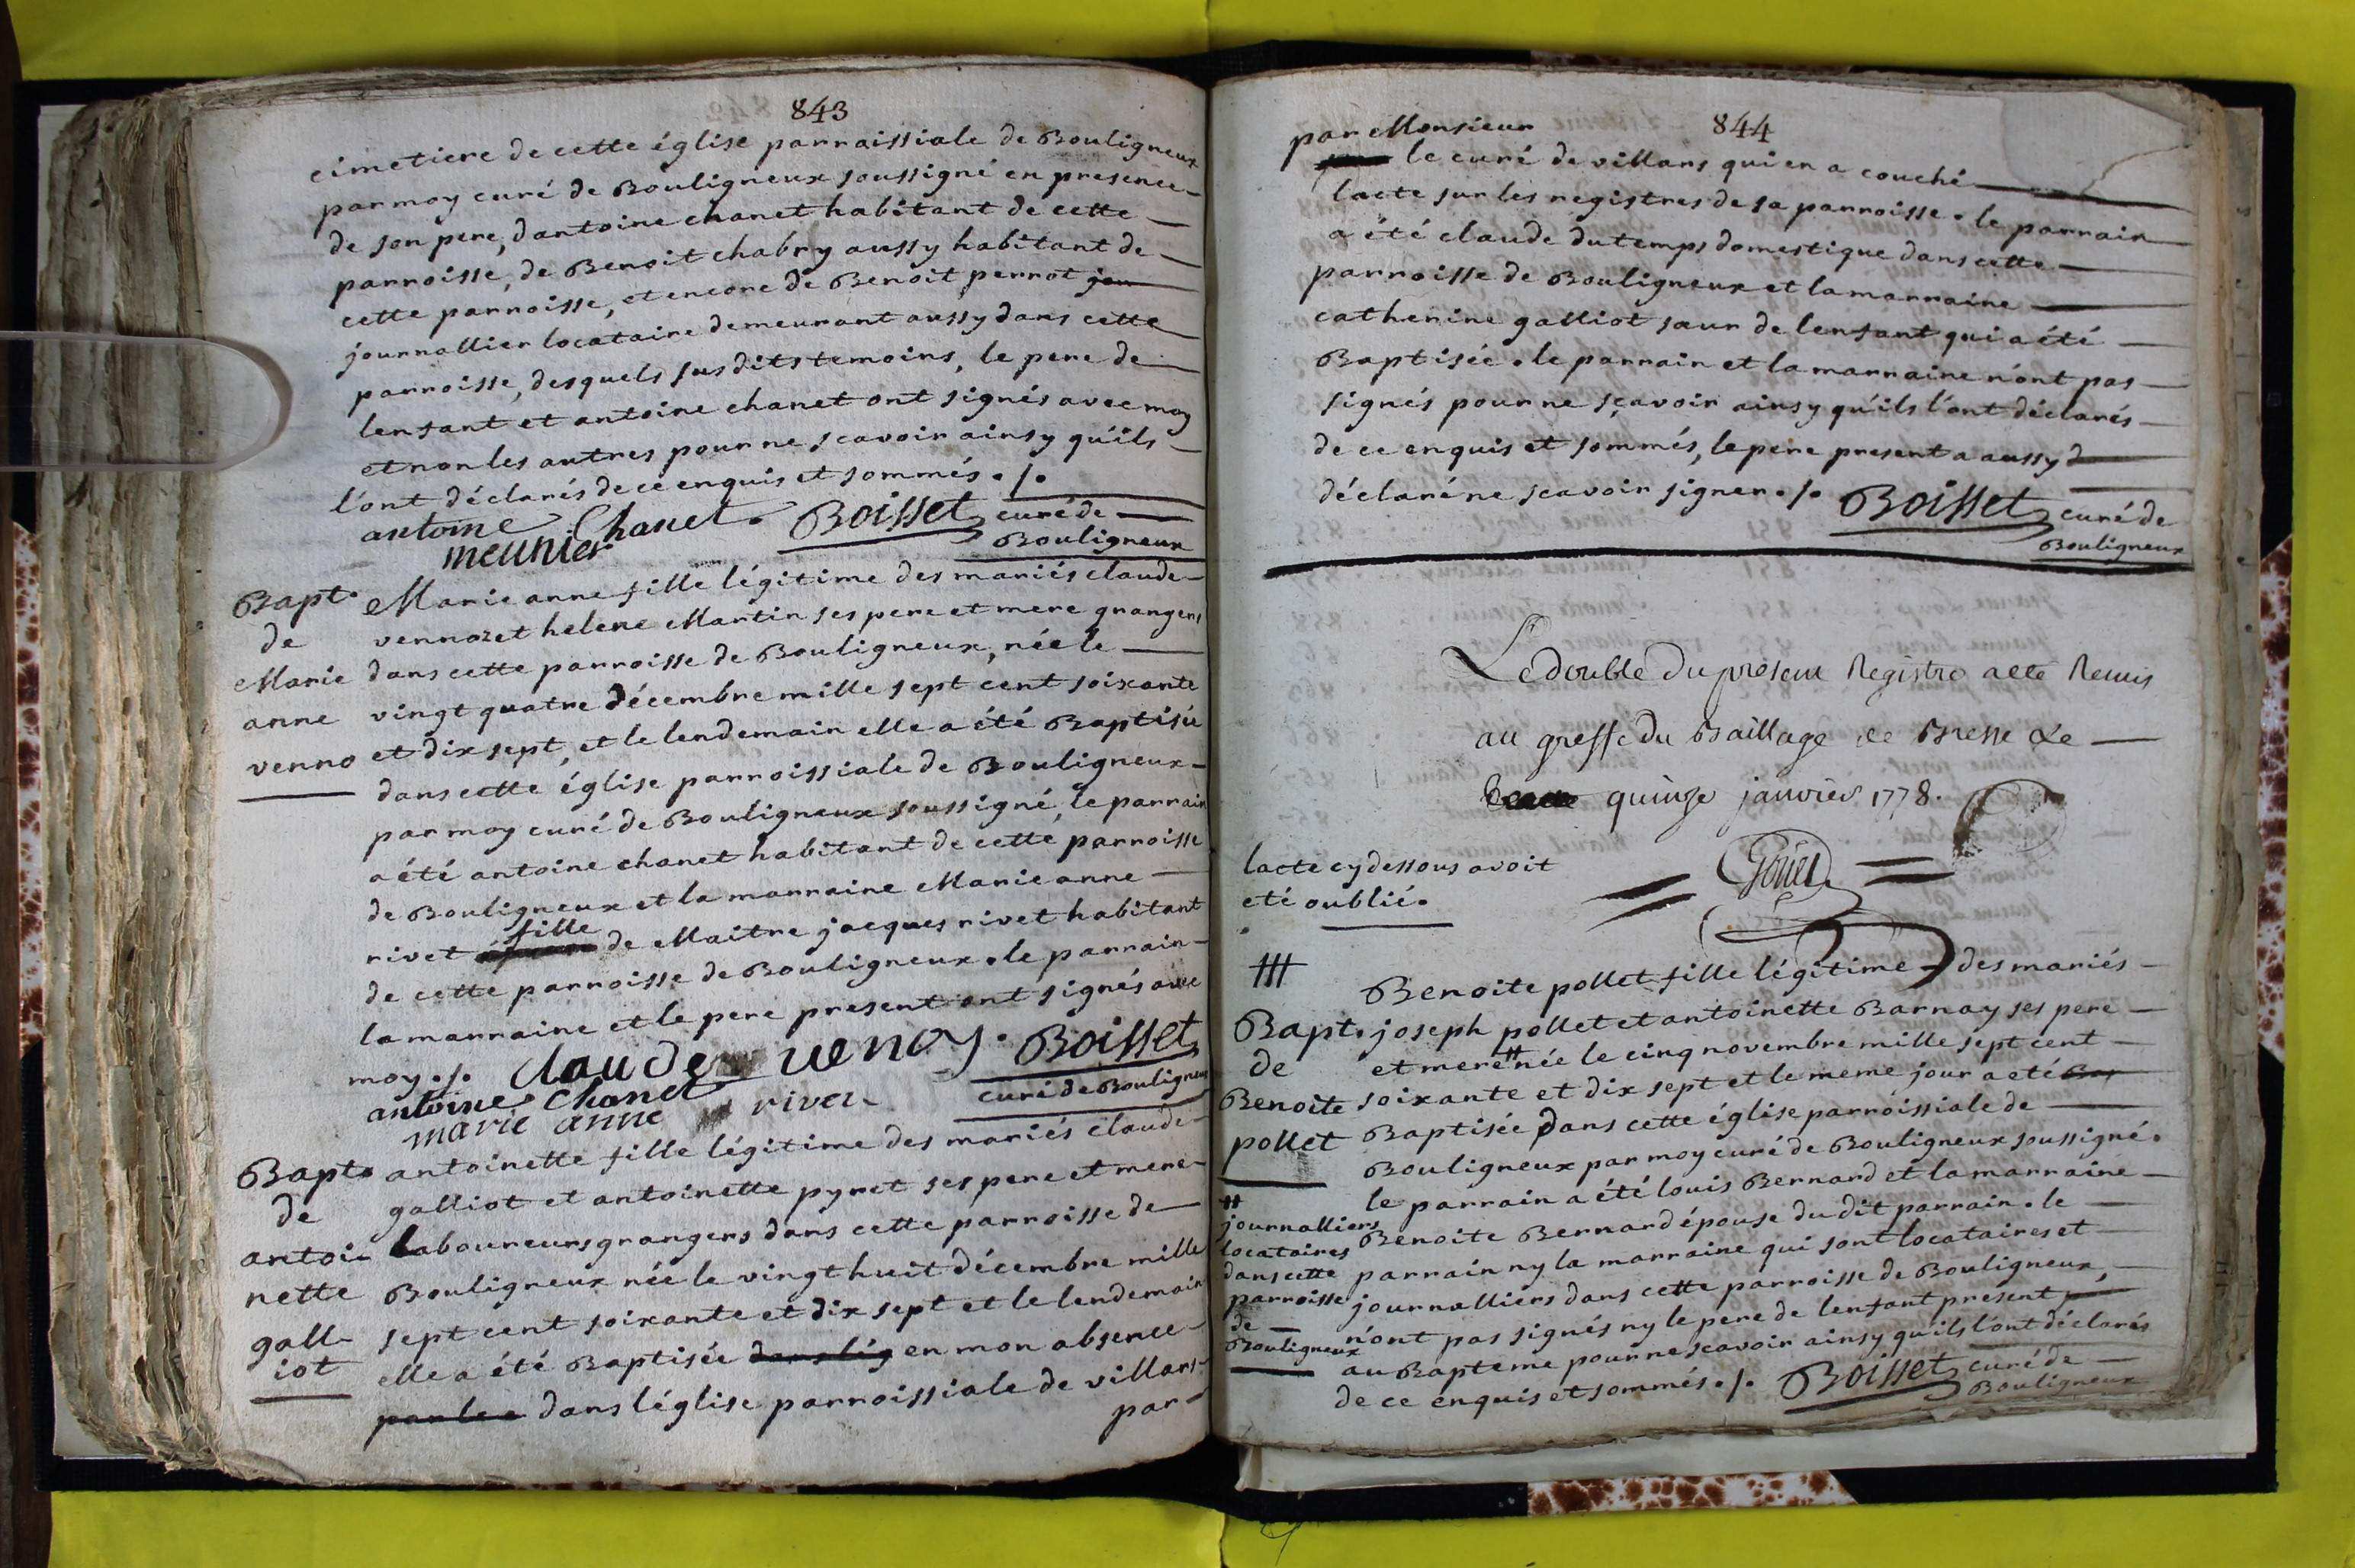 843
cimetiere de cette église parroissiale de Bouligneux
par moy curé de Bouligneux soussigné en presence
de son pere, d antoine chanet habitant de cette
parroisse, de Benoit chabry aussy habitant de
cette parroisse, et encore de Benoit perrot jou
journallier locataire demeurant aussy dans cette
parroisse, desquels susdits temoins, le pere de
lenfant et antoine chanet ont signés avec moy
et non les autres pour ne scavoir ainsy qu'ils
l'ont déclarés de ce enquis et sommés ./.
antoine Chanet. Boisset curé de
meunier Bouligneux
Bapt.
de
Marie
anne
venno
Marie anne fille légitime des mariés claude
vennoz et helene Martin ses pere et mere grangers
dans cette parroisse de Bouligneux, née le
vingt quatre décembre mille sept cent soixante
et dix sept, et le lendemain elle a été Baptisée
dans cette église parroissiale de Bouligneux
par moy curé de Bouligneux soussigné, le parrain
a été antoine chanet habitant de cette parroisse
de Bouligneux et la marraine Marie anne
fille
rivet de Maitre jacques rivet habitant
de cette parroisse de Bouligneux. le parrain
la marraine et le pere present ont signés avec
moy ./. claude venoy. Boisset
antoine Chanet curé de Bouligneux
marie anne rivet
Bapt.
de
antoi
nette
gall
iot
antoinette fille légitime des mariés claude
galliot et antoinette pyret ses pere et mere
laboureurs grangers dans cette parroisse de
Bouligneux née le vingt huit décembre mille
sept cent soixante et dix sept et le lendemain
elle a été Baptisée en mon absence
par le c dans léglise parroissiale de villars
par
844
par Monsieur
le curé de villars qui en a couché
lacte sur les registres de sa parroisse. le parrain
a été claude dutemps domestique dans cette
parroisse de Bouligneux et la marraine
catherine galliot sœur de lenfant qui a été
Baptisée. le parrain et la marraine n'ont pas
signés pour ne sçavoir ainsy qu'ils l'ont déclarés
de ce enquis et sommés, le pere present a aussy d
déclaré ne scavoir signer ./. Boisset curé de
Bouligneux
Le double du present Registre a eté Remis
au greffe du Baillage de Bresse Le
quinze janvier 1778.
lacte cy dessous avoit
eté oublié.
Bapt.
de
Benoite
pollet
Benoite pollet fille légitime des mariés
joseph pollet et antoinette Barnay ses pere
et mere # née le cinq novembre mille sept cent
soixante et dix sept et le meme jour a eté Bap
Baptisée dans cette église parroissiale de
Bouligneux par moy curé de Bouligneux soussigné.
le parrain a été louis Bernard et la marraine
Benoite Bernard épouse du dit parrain. le
parrain ny la marraine qui sont locataires et
journalliers dans cette parroisse de Bouligneux,
n'ont pas signés ny le pere de lenfant present
au Bapteme pour ne scavoir ainsy qu'ils l'ont déclarés
de ce enquis et sommés ./. Boisset curé de
Bouligneux
#
journalliers
locataires
dans cette
parroisse
de
Bouligneux